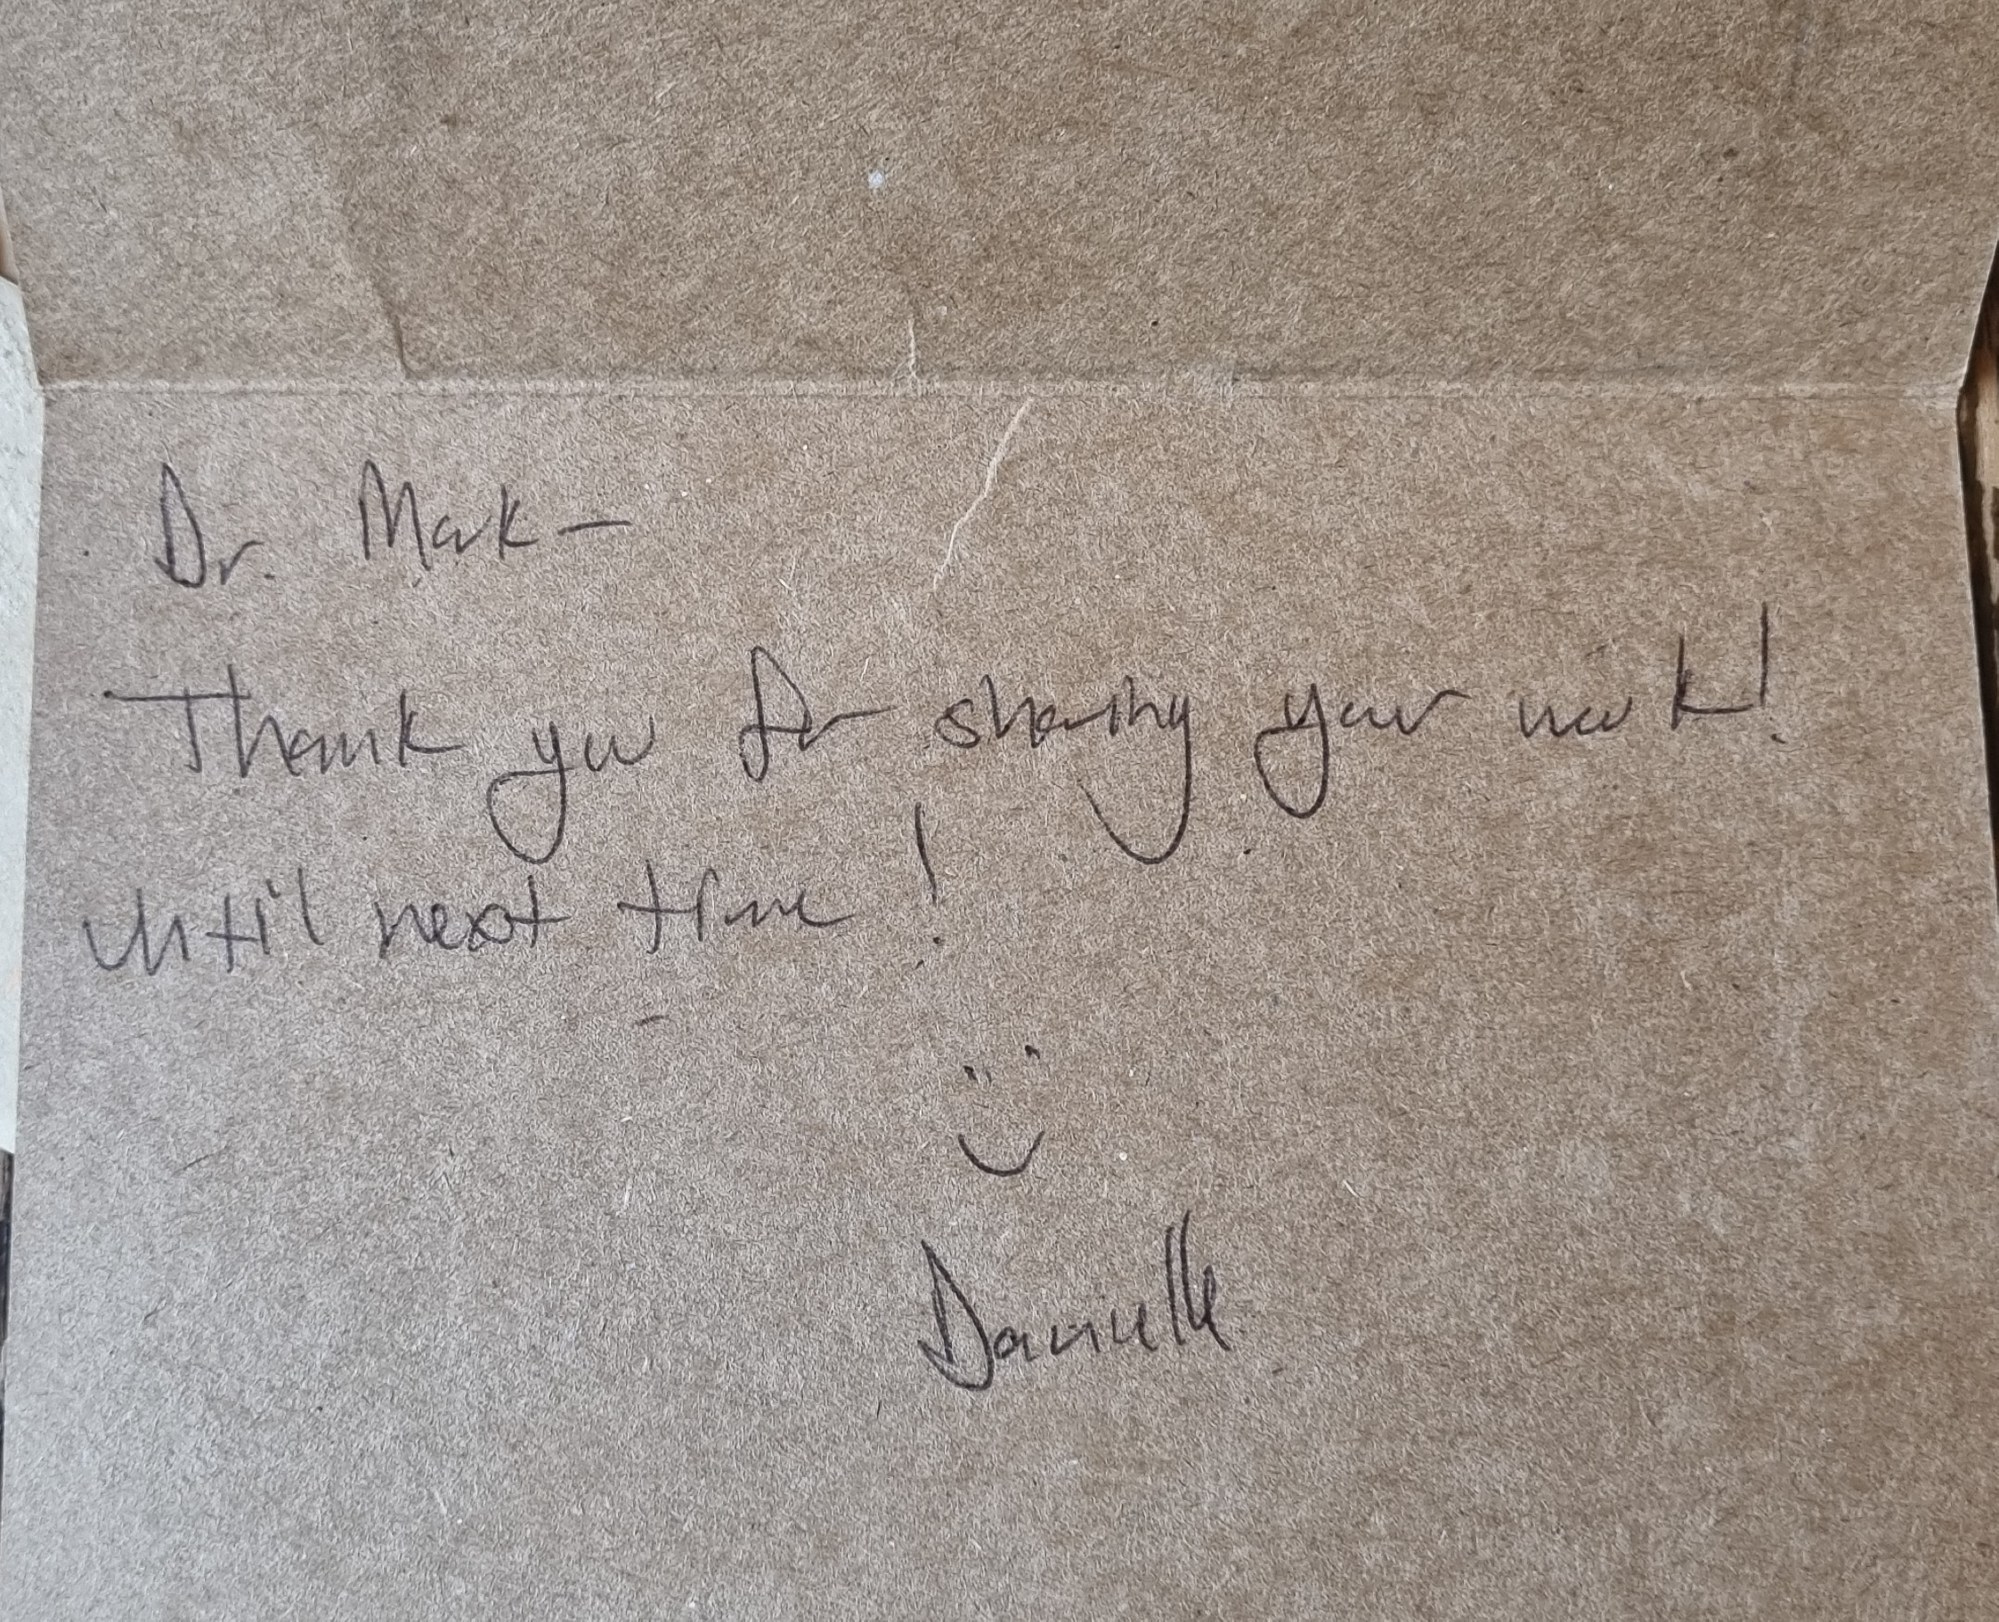 Dr. Mark —
Thank you for sharing your work!
until next time!
Danielle